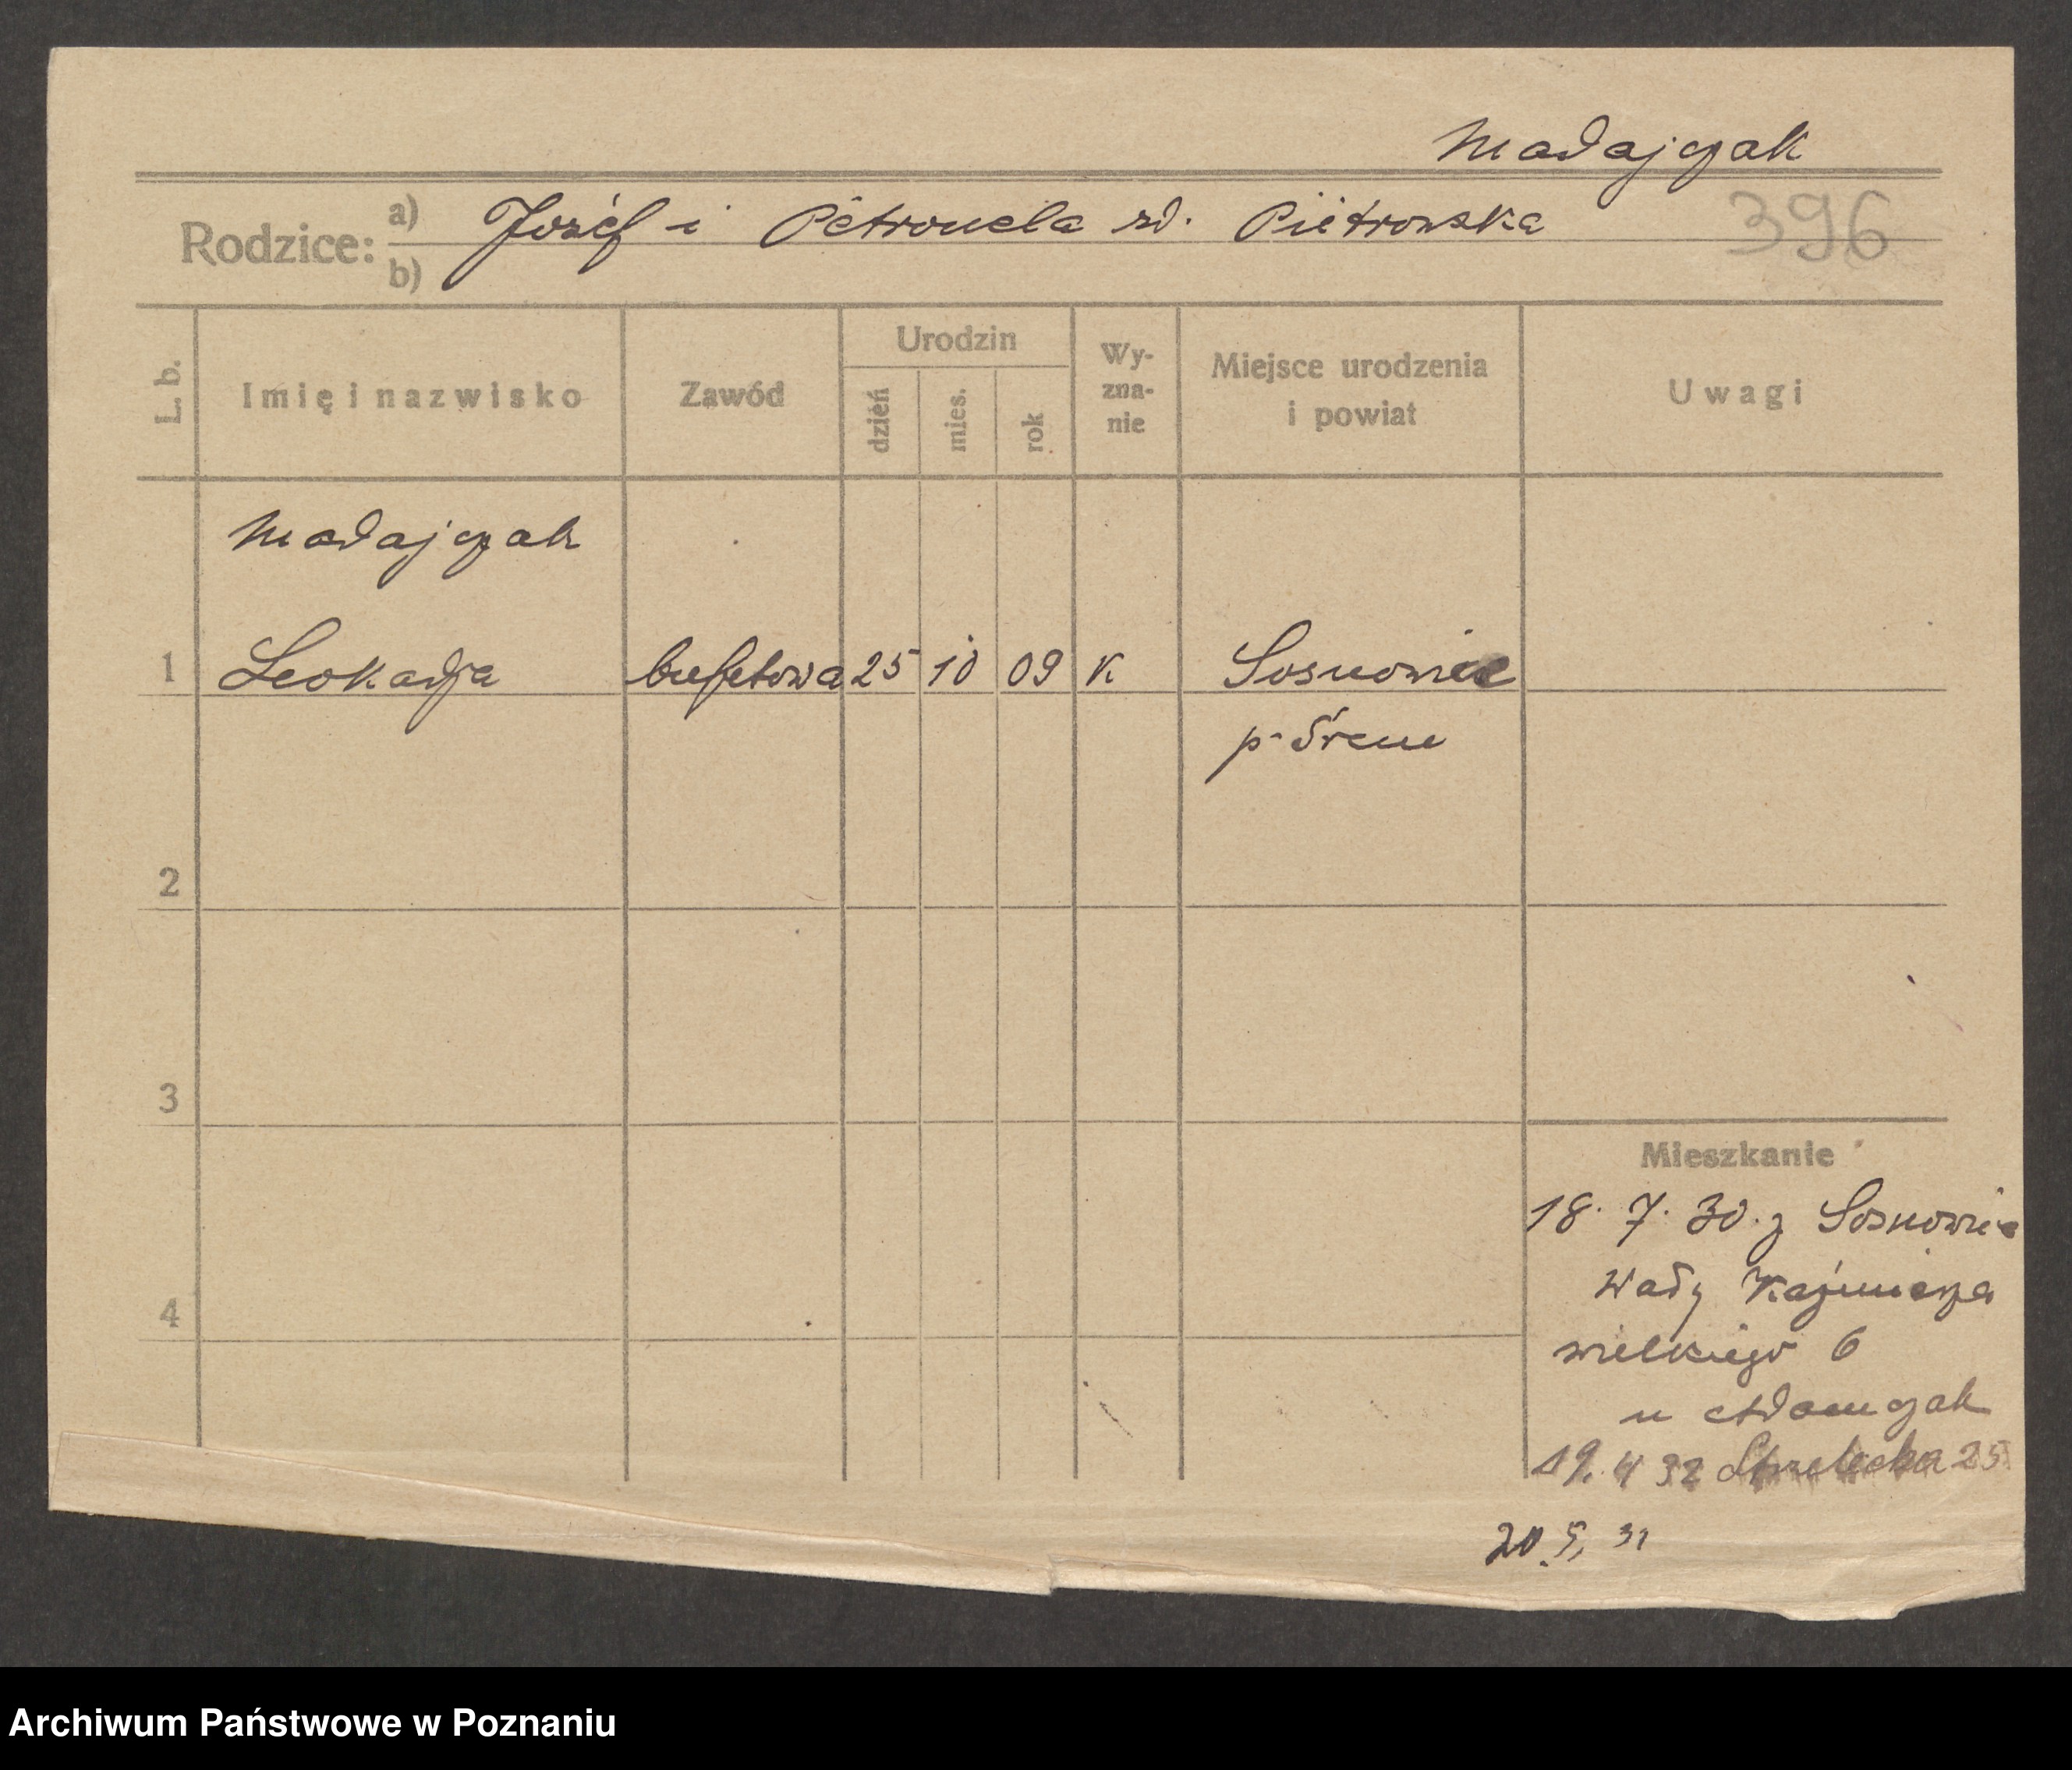 Madajczak
Rodzice: a) Józéf i Petronela zd. Pietrowska
b)
396
L. b. Imię i nazwisko Zawód Urodzin dzień mies. rok Wyznanie Miejsce urodzenia i powiat Uwagi
Madajczak
1 Leokadja bufetowa 25 10 09 K Sosnowiec
p. Śrem
2
3
Mieszkanie
18. 7. 30. z Sosnowiec
Wały Kaźmierza
4
wielkiego 6
u Adamczak
19. 4 32 Strzelecka 25
20. 5, 31
Archiwum Państwowe w Poznaniu